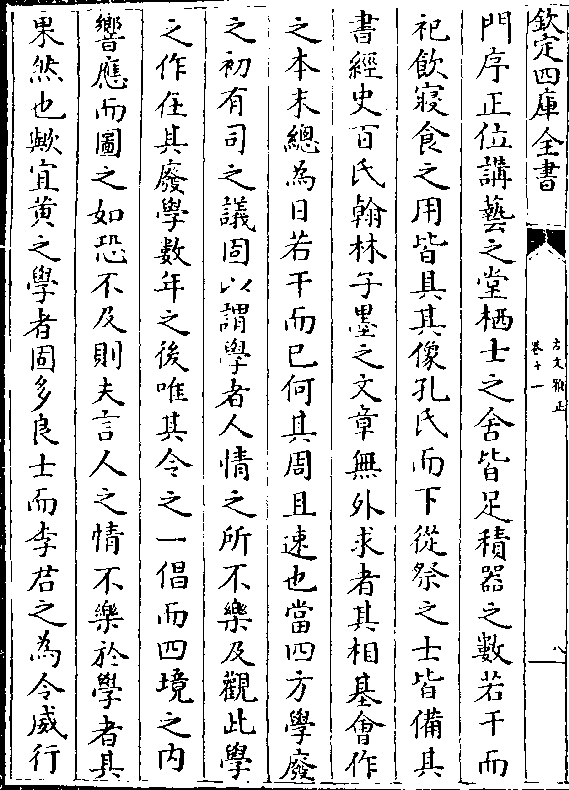 欽定四庫全書
古文雅正
卷十一
八
門序正位講藝之堂栖士之舍皆足積器之數若干而
祀飲寢食之用皆具其像孔氏而下從祭之士皆備其
書經史百氏翰林子墨之文章無外求者其相基會作
之本末總為日若干而已何其周且速也當四方學廢
之初有司之議固以謂學者人情之所不樂及觀此學
之作在其廢學數年之後唯其令之一倡而四境之内
響應而圖之如恐不及則夫言人之情不樂於學者其
果然也歟宜黄之學者固多良士而李君之為令威行